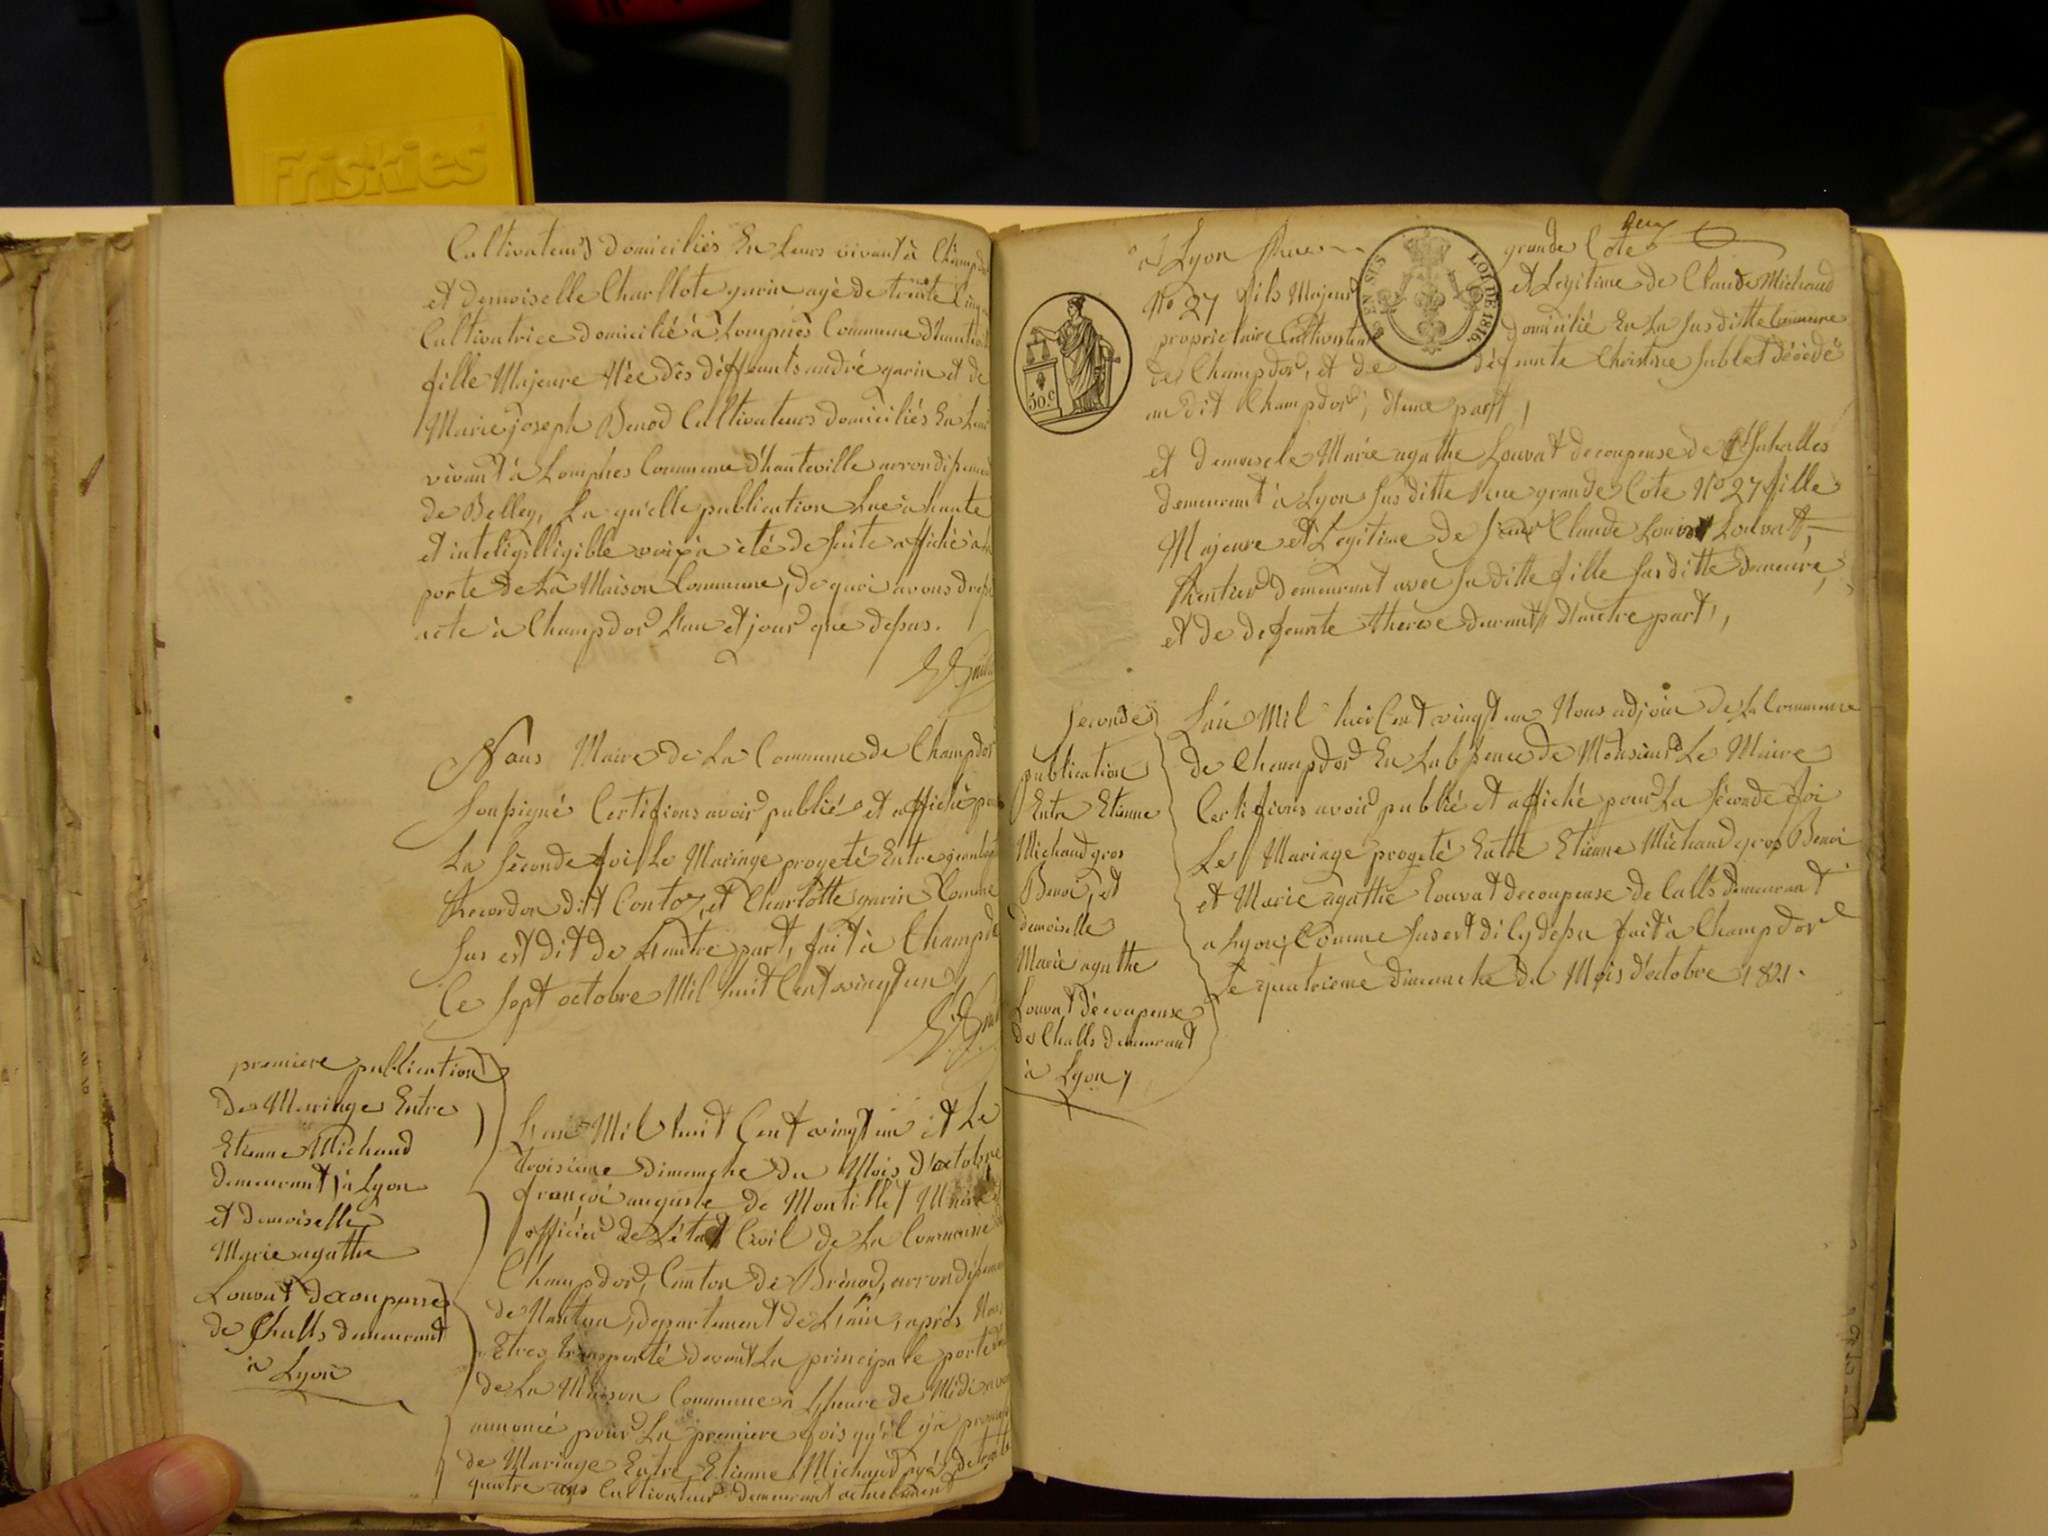 Friskies
Cultivateurs domiciliés En Leurs vivant à Champdor
et demoiselle Charllote garin agé de trente Cinq
Cultivatrice domicilié à Lompnes Commune d'hauteville
fille Majeure Née dès déffeants andré garin et de
Marie joseph Benod Cultivateurs domiciliés En Leur
vivant à Lompnes Commune d'hauteville arrondissement
de Belley, La qu'elle publication Lue à haute
et inteligilligible voix à été de suite affiché à la
porte de La Maison Commune, de quoi avons dressé
acte à Champdor L'an et jour que dessus.
Nous Maire de La Commune de Champdor
Soussigné Certifions avoir publié et affiché pour
La Séconde foi Le Mariage progeté Entre
Recordon ditt Contoz, et Charlotte garin Comme
Sus est dit de L'autre part, fait à Champdor
Ce Sept octobre Mil huit Cent vingt un
premiere publication
de Mariage Entre
Etienne Michaud
demeurant à Lyon
et demoiselle
Marie agathe
Louvat decoupeuse
de Challs demeurant
à Lyon
L'an Mil huit Cent vingt un et Le
troisième dimanche du Mois d'octobre
françoi auguste de Montillet Maire
officier de L'état Civil de La Commune de
Champdor, Canton de Brénod, arrondissement
de Nantua, departement de L'ain, après Nous
Etres transporté devant La principale porte
de La Maison Commune à L'heure de Midi avons
annoncé pour La premiere fois qu'il y a promesse
de Mariage Entre Etienne Michaud agé de trente
quatre ans Cultivateur demeurant actuelement
à Lyon Rue grande Cote
No 27 fils Majeur et Légitime de Claude Michaud
proprietaire Cultivateur domicilié En La Susditte Commune
de Champdor, et de défeunte Christine Sublet décédé
au dit Champdor, d'une part,
LOI DE 1816.
50.c
et demoisele Marie agathe Louvat decoupeuse de Challes
demeurant à Lyon Susditte Rue grande Cote No 27 fille
Majeure et Legitime de Sieur Claude Louis Louvat,
Rentier demeurant avec Saditte fille Susditte demeure,
et de defeunte therèse durant, d'autre part,
Seconde
publication
Entre Etienne
Michaud gros
Benoi, et
demoiselle
Marie agathe
Louvat découpeuse
de Challs demeurant
à Lyon
L'an Mil huit Cent vingt un Nous adjoin de La Commune
de Champdor En Labsence de Monsieur Le Maire
Certifions avoir publié et affiché pour La Séconde foi
Le Mariage progeté Entre Etienne Michaud gros Benoi
et Marie agathe Louvat decoupeuse de Calls demeurant
a Lyon, Comme Sus est di Cy dessu fait à Champdor
le quatrieme dimanche du Mois d'octobre 1821.